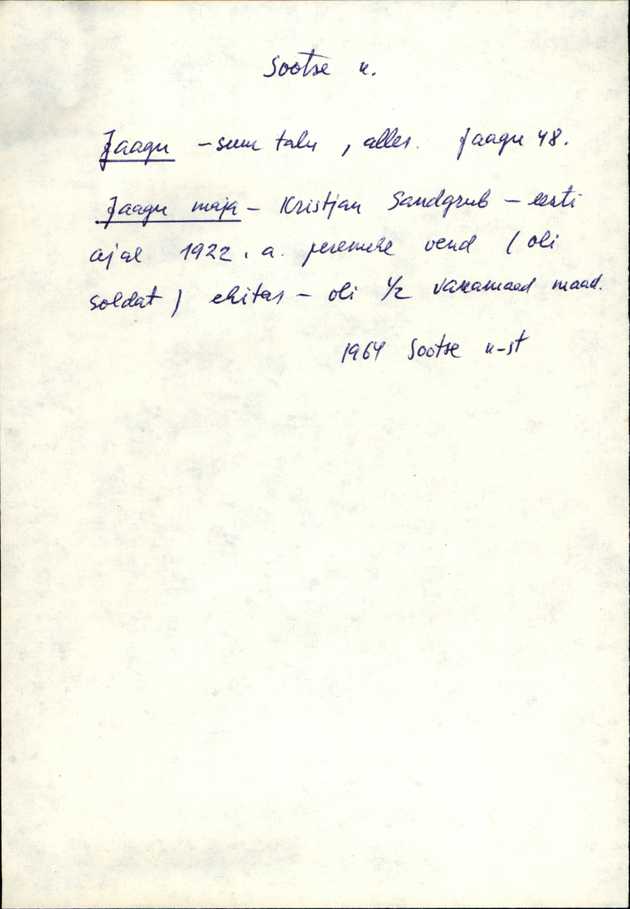 Sootse k.
Jaagu – suur talu, alles. Jaagu 48.
Jaagu maja – Kristjan Sandgrub – eesti
ajal 1922. a. peremehe vend (oli
soldat) ehitas – oli 1/2 vakamaad maad.
1964 Sootse k-st